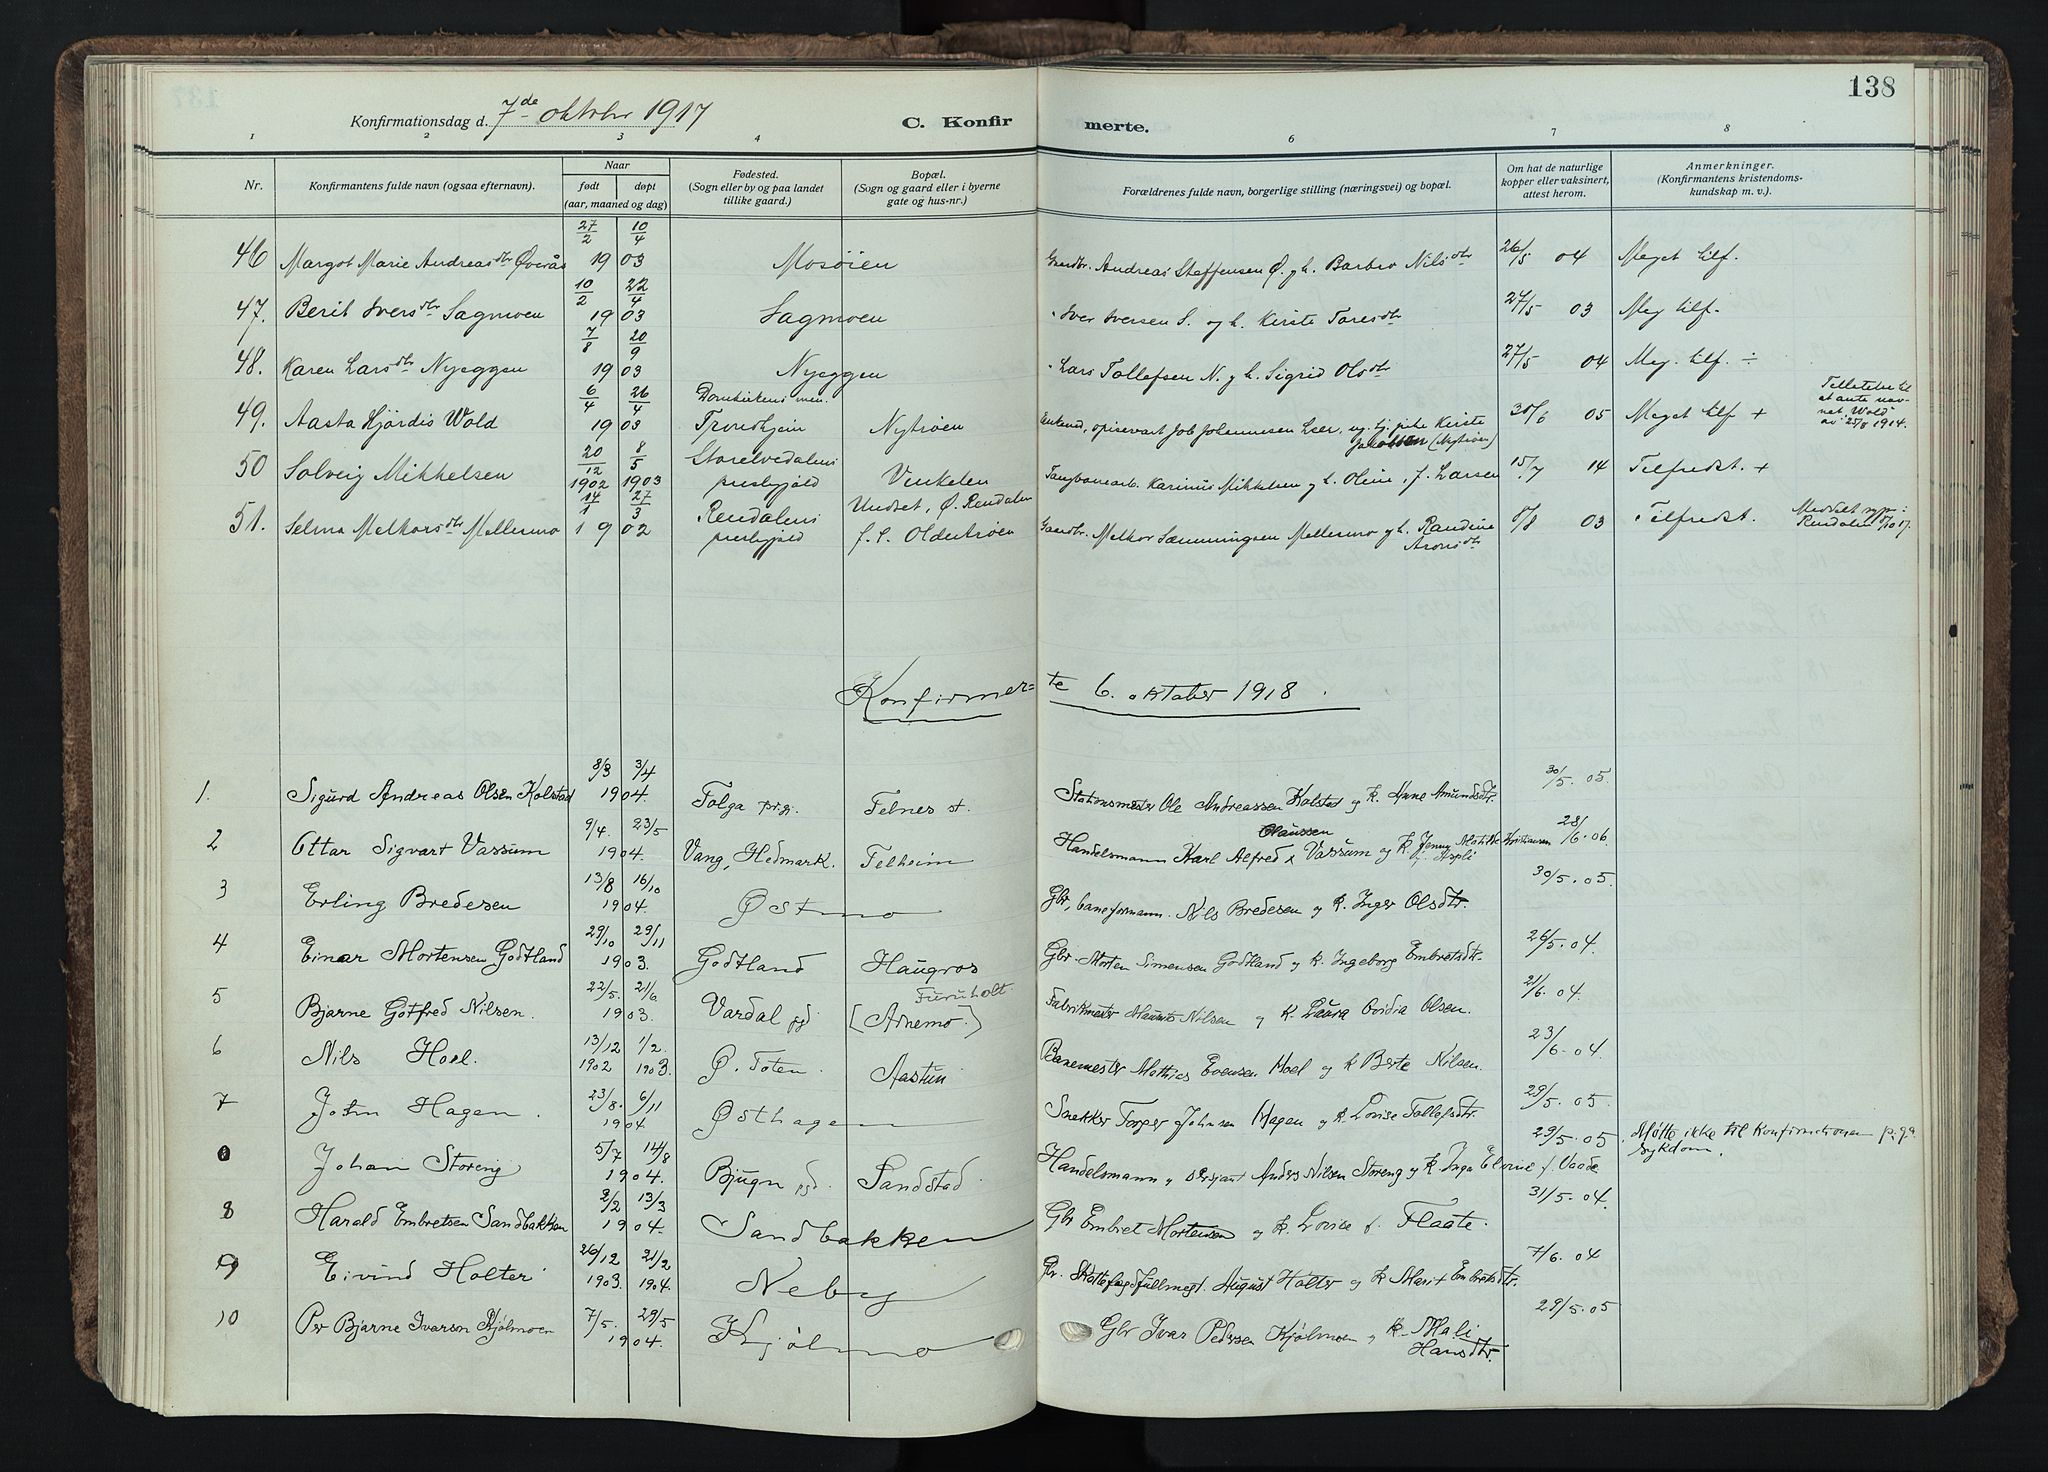 138
Konfirmationsdag d. 7de oktober 1917
C. Konfir merte.
1 2 3 4 6 7 8
Nr.
Konfirmantens fulde navn (ogsaa efternavn).
Naar
født døpt
(aar, maaned og dag)
Fødested.
(Sogn eller by og paa landet
tillike gaard.)
Bopæl.
(Sogn og gaard eller i byerne
gate og hus-nr.)
Forældrenes fulde navn, borgerlige stilling (næringsvei) og bopæl.
Om hat de naturlige
kopper eller vaksinert,
attest herom.
Anmerkninger.
(Konfirmantens kristendoms-
kundskap m. v.).
46 Margot Marie Andreasdtr Øverås 27/2 10/4 1903 Mosøien Gaardbr. Andreas Steffensen Ø. og h. Barbro Nilsdtr 26/5 04 Meget tilf.
47. Berit Iversdtr Sagmoen 10/2 22/4 1903 Sagmoen " Iver Iversen S. og h. Kirste Toresdtr 27/5 03 Meg tilf.
48. Karen Larsdtr Nyeggen 7/8 20/9 1903 Nyeggen " Lars Tollefsen N. og h. Sigrid Olsdtr 27/5 04 Meg. tilf. ÷
49. Aasta Hjördis Wold 6/4 26/4 1903 Domkirkens men. Trondhjem Nytrøen Enkemd, Job Johannesen Leer, ug. tj. pike Kirste Jakobsen (Nytrøen) 30/6 05 Meget tilf + Tillatelse til at anta nav-
net "Wold"
av 25/8 1914.
50 Solveig Mikkelsen 20/12 1902 8/5 1903 Storelvedalens prestegjeld Vinkelen Karinus Mikkelsen og h. Oline, f. Larsen 15/7 14 Tilfredst. +
51. Selma Melkorsdtr Mellemmo 14/1 27/3 1902 Rendalens prestegjeld Undset, Ø. Rendalen
f. t. Oldertrøen Gaardbr. Melkor Sæmmingsen Mellemmo og h. Randine Aronsdtr 8/8 03 Tilfredst. Meddelt spr. i
Rendalen 8/10 17.
Konfirmer= te 6. oktober 1918.
1. Sigurd Andreas Olsen Kolstad 8/3 3/4 1904. Tolga prg. Telnes st. Stationsmester Ole Andreassen Kolstad og k. Anne Amundsdtr. 30/5. 05.
2 Ottar Sigvart Vassum 9/4. 23/5 1904. Vang, Hedmark. Telheim Handelsmann Karl Alfred Olaussen Vassum og k. Jenny Matilde Kristiansen f. Aspli 28/6. 06.
3 Erling Bredesen 13/8 16/10 1904. Østmo Gbr, baneformann. Nils Bredesen og k. Inger Olsdtr. 30/5. 05.
4 Einar Mortensen Godtland 29/10 29/11 1903. Godtland Haugros Gbr. Morten Simensen Godtland og k. Ingeborg Embretsdtr. 26/5. 04.
5 Bjarne Gotfred Nilsen. 22/5. 21/6 1903. Vardal pgd Furuholt. [Arnemo.] Fabrikmester Maurits Nilsen og k. Laura Ovidia Olsen. 21/6. 04.
6 Nils Hoel. 13/12 1902 1/2. 1903. Ø. Toten. Aastun Banemester Mathias Evensen Hoel og k Berte Nilsen. 23/6. 04.
7 John Hagen. 23/8. 6/11 1904. Østhagen Snekker Torger Johnsen Hagen og k. Lovise Tollefsdtr. 29/5. 05.
0 Johan Storeng 5/7 14/8 1904. Bjugn pgd. Sandstad. Handelsmann, sersjant Anders Nilsen Storeng og k. Inga Elvine f. Vaade 29/5. 05. Møtte ikke til konfirmationen p.g.a
sykdom.
8 Harald Embretsen Sandbakken 2/2 13/3 1904. Sandbakken Gbr Embret Mortensen og k. Lovise f. Flaate. 31/5. 04.
9 Eivind Holter 26/12 1903. 21/2 1904. Neby Gbr. Skattefogdfullmegt. August Holter og k Marit Embretsdtr. 7/6. 04
10 Per Bjarne Ivarson Kjølmoen 7/5. 29/5 1904. Kjølmo Gbr Ivar Pedersen Kjølmoen og k. Mali Hansdtr. 29/5. 05